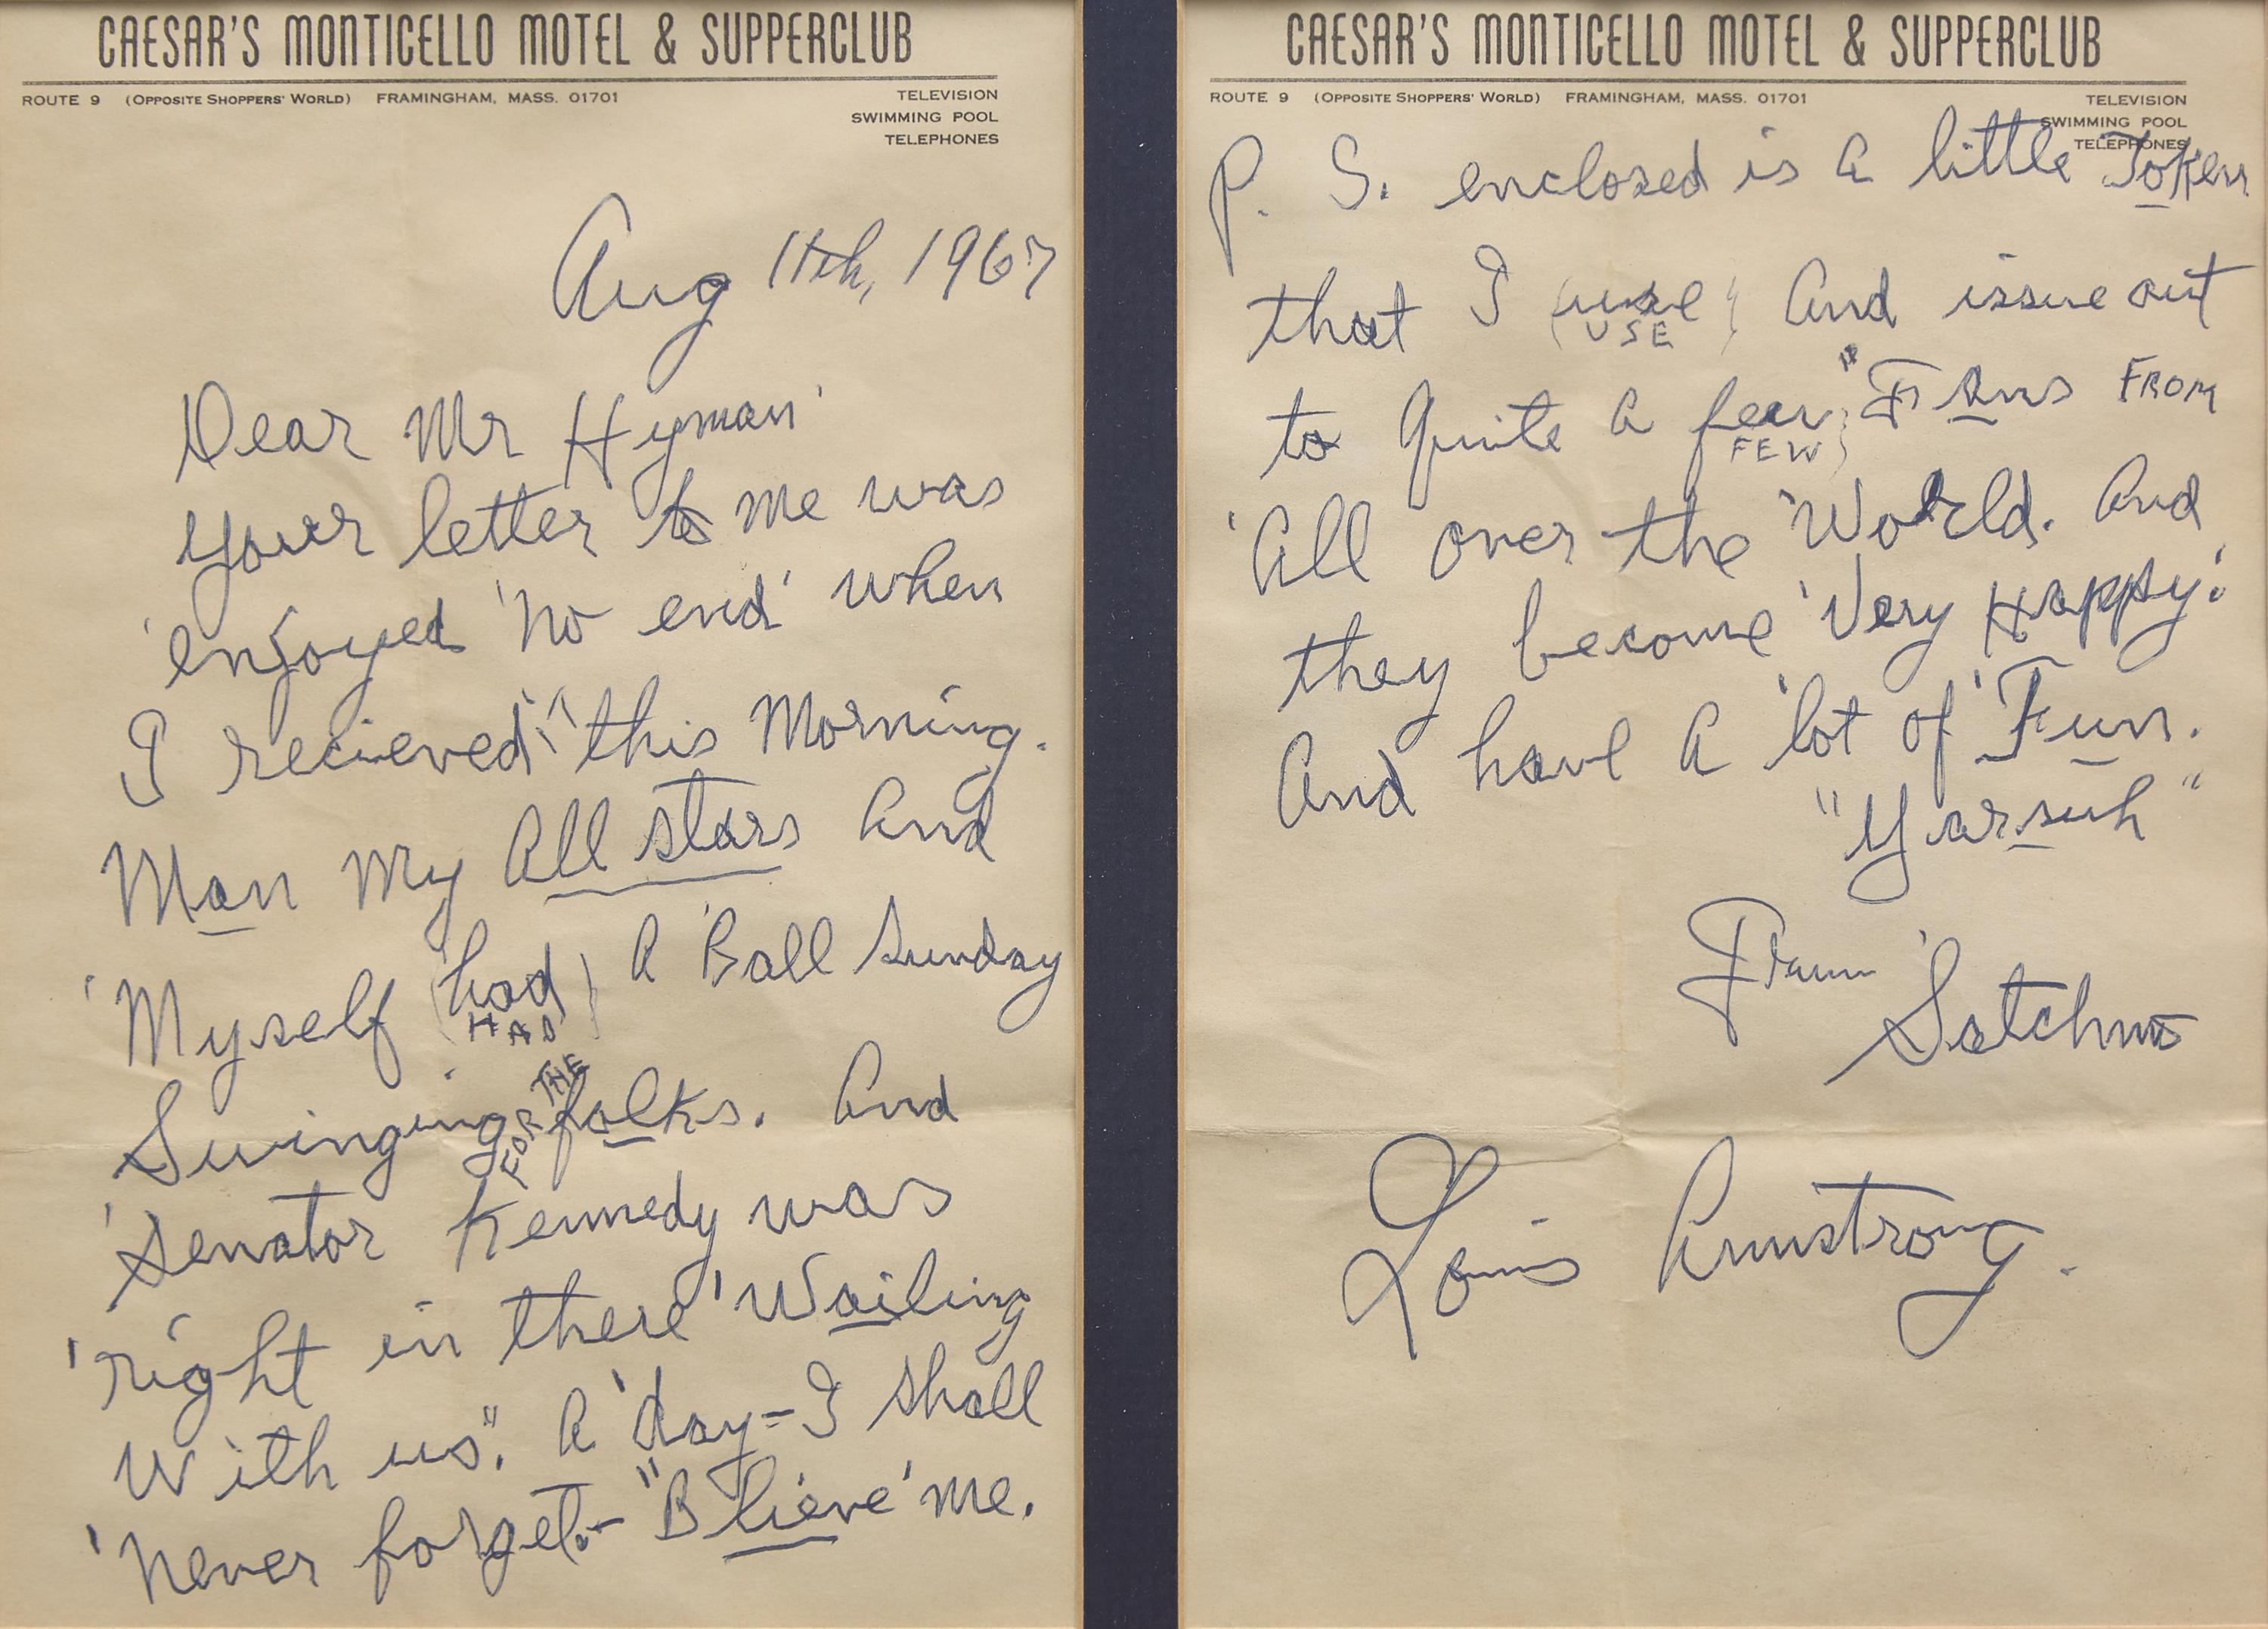 CAESAR'S MONTICELLO MOTEL & SUPPERCLUB
ROUTE 9 (OPPOSITE SHOPPERS' WORLD) FRAMINGHAM, MASS. 01701
TELEVISION
SWIMMING POOL
TELEPHONES
Aug 11th, 1967
Dear Mr Hyman'
Your letter to me was
'enjoyed 'no end' when
I recieved this Morning.
Man My All stars And
'Myself (had) A 'Ball Sunday
HAD
Swinging FOR THE folks. And
'Senator Kennedy was
'right in there 'Wailing
With us". A 'day = I shall
'Never forget.- "Blieve 'me.
CAESAR'S MONTICELLO MOTEL & SUPPERCLUB
ROUTE 9 (OPPOSITE SHOPPERS' WORLD) FRAMINGHAM, MASS. 01701
TELEVISION
SWIMMING POOL
TELEPHONES
P. S. enclosed is A little Token
that I (use) And issue out
USE
to Quite A few "Fans FROM
FEW
'All over the 'World. And
they become 'Very Happy.'
And have A 'lot of 'Fun.
"Yarsuh"
From 'Satchmo
Louis Armstrong.